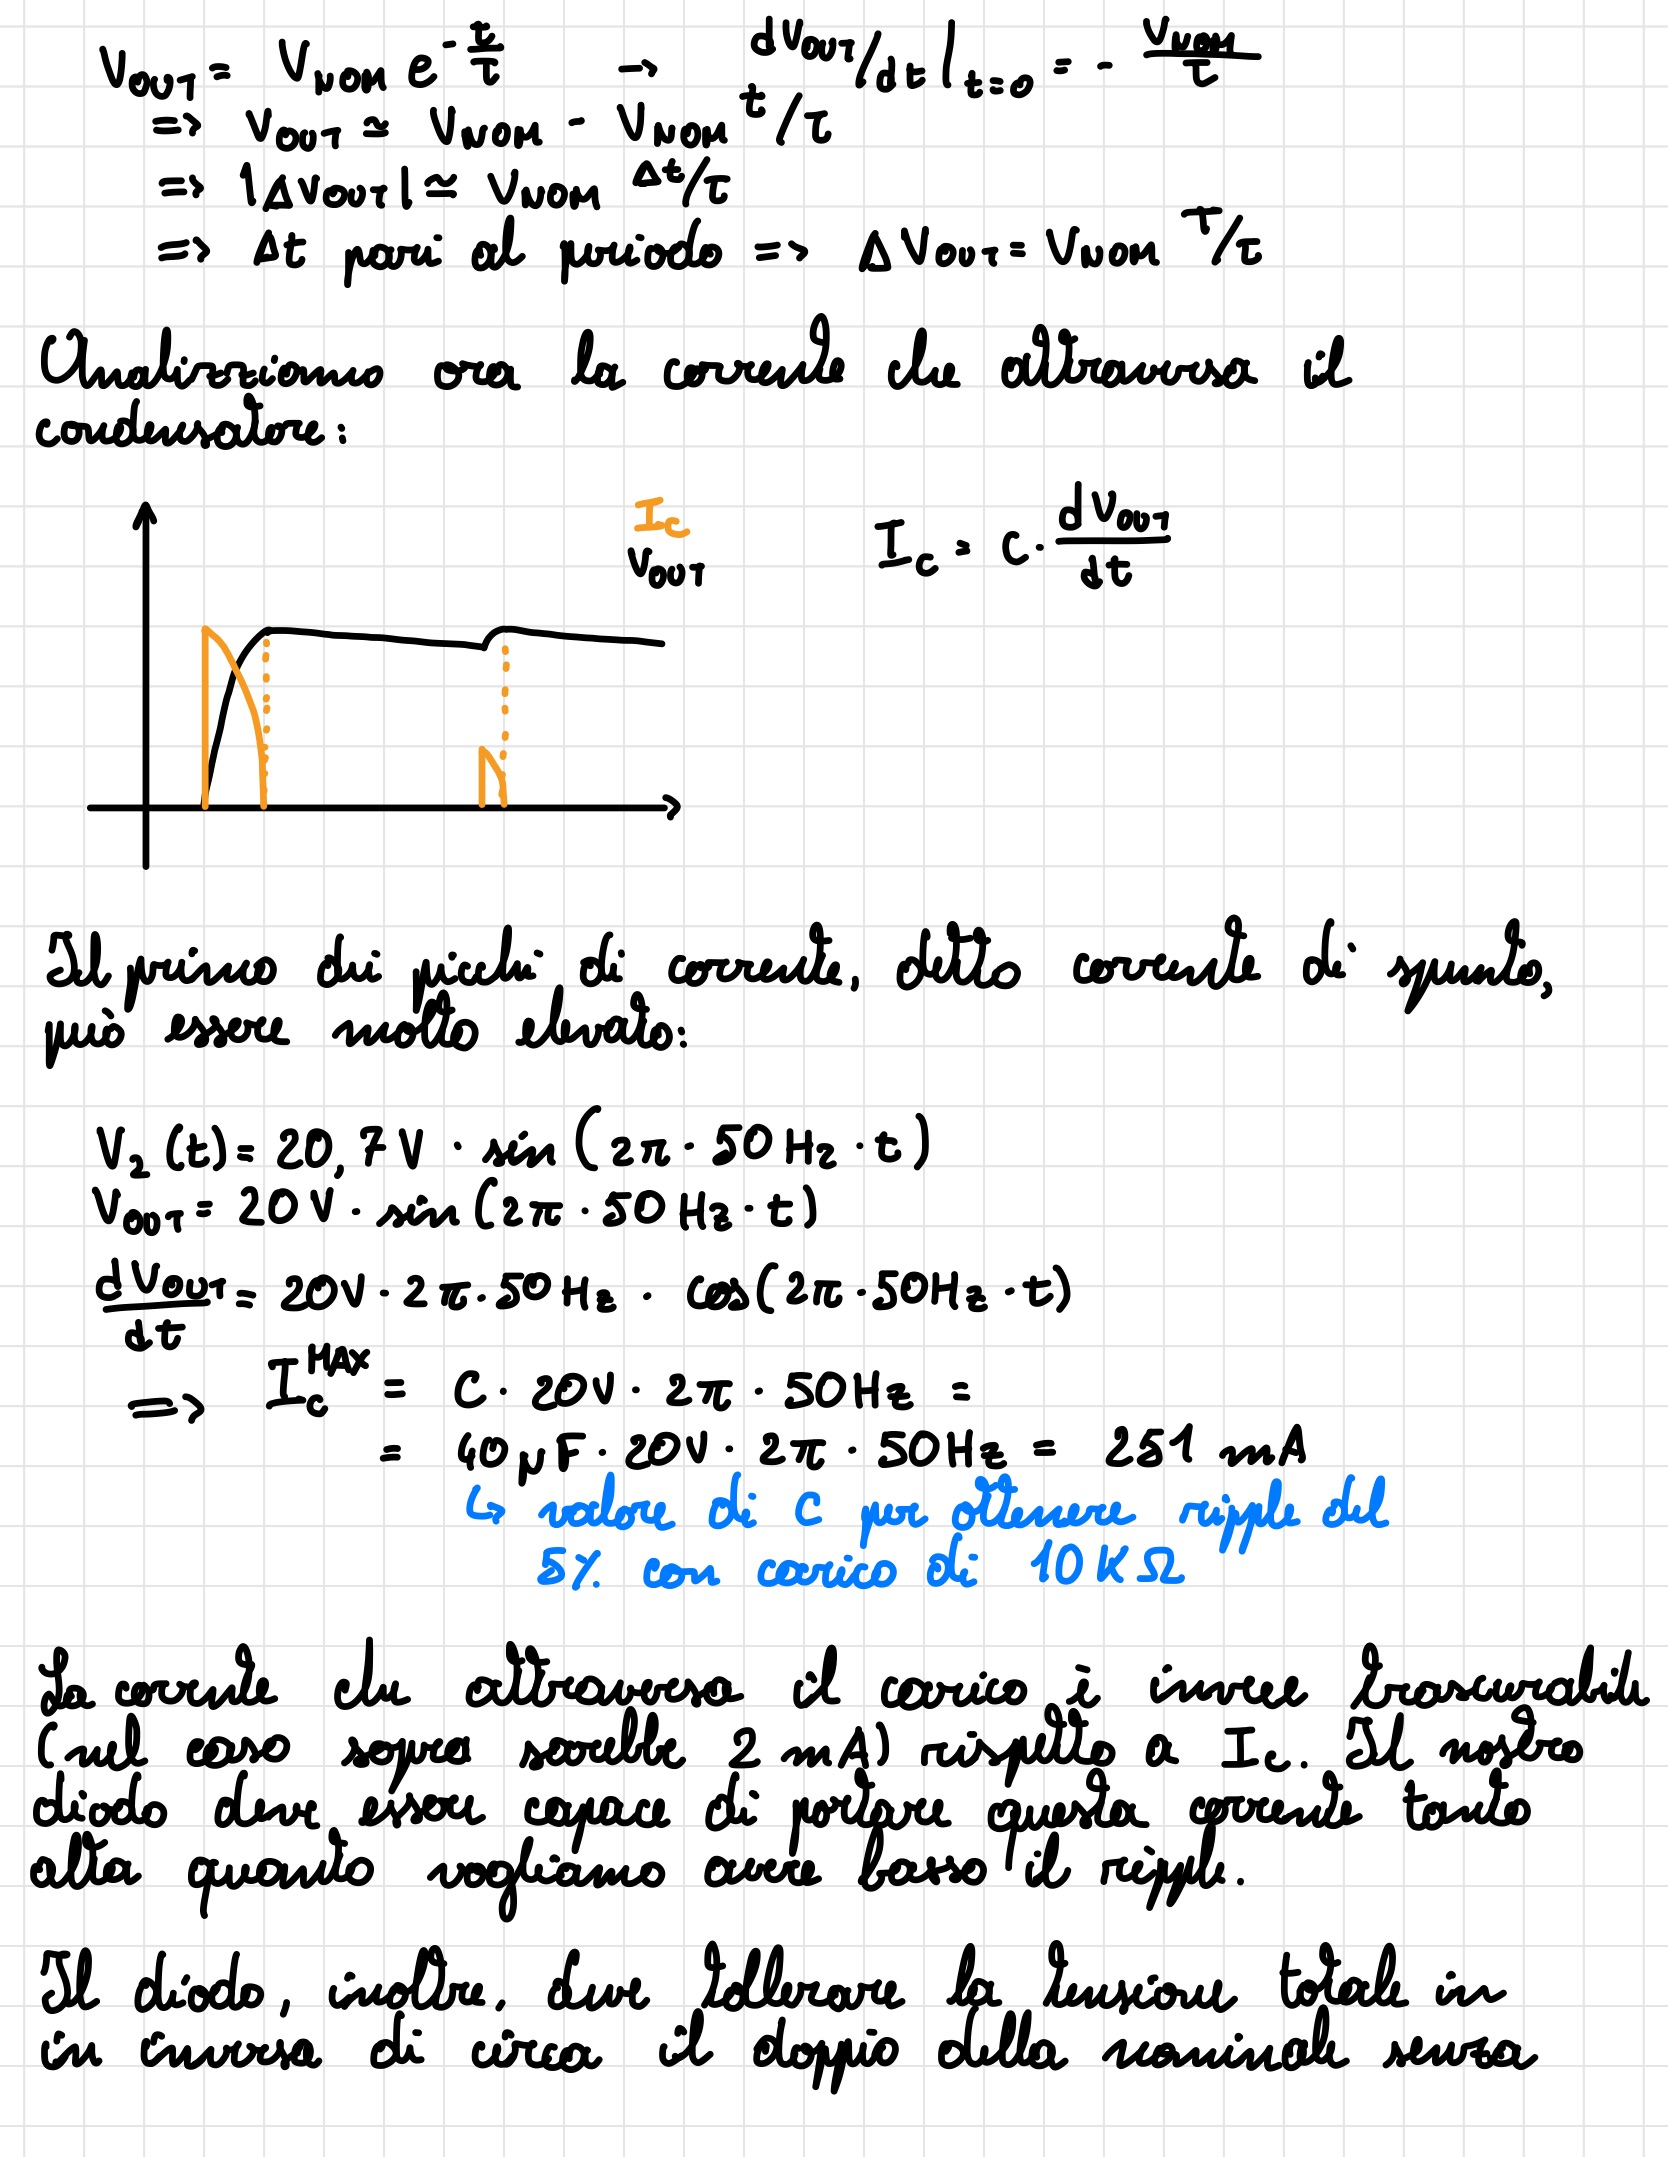 V_OUT = V_NOM e^(-t/τ) → dV_OUT/dt |_(t=0) = - V_NOM/τ
=> V_OUT ≃ V_NOM - V_NOM t/τ
=> |ΔV_OUT| ≃ V_NOM Δt/τ
=> Δt pari al periodo => ΔV_OUT = V_NOM T/τ
Analizziamo ora la corrente che attraversa il
condensatore:
I_C
V_OUT
I_C = C · dV_OUT/dt
Il primo dei picchi di corrente, detto corrente di spunto,
può essere molto elevato:
V_2 (t) = 20,7 V · sin (2π · 50 Hz · t)
V_OUT = 20 V · sin (2π · 50 Hz · t)
dV_OUT/dt = 20V · 2π · 50 Hz · cos(2π · 50Hz · t)
=> I_C^MAX = C · 20V · 2π · 50Hz =
= 40 μF · 20V · 2π · 50Hz = 251 mA
↳ valore di C per ottenere ripple del
5% con carico di 10 KΩ
La corrente che attraversa il carico è invece trascurabile
(nel caso sopra sarebbe 2 mA) rispetto a I_C. Il nostro
diodo deve essere capace di portare questa corrente tanto
alta quanto vogliamo avere basso il ripple.
Il diodo, inoltre, deve tollerare la tensione totale in
in inversa di circa il doppio della nominale senza